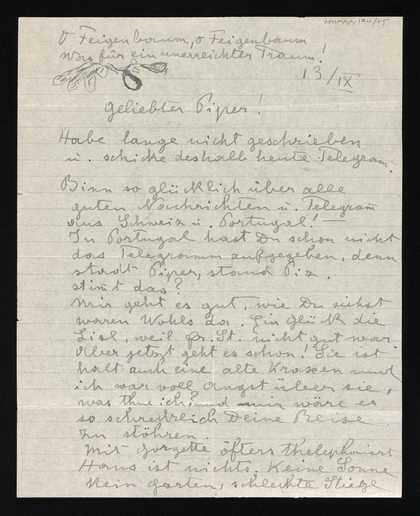 O Feigenbaum, o Feigenbaum
Was für ein unerreichter Traum!
13/IX
Geliebter Piper!
Habe lange nicht geschrieben
u. schicke deshalb heute Telegram.
Binn so glücklich über alle
guten Nachrichten u. Telegram
aus Schweiz u. Portugal! —
In Portugal hast Du schon nicht
das Telegramm aufgegeben, denn
statt Piper, stand Piz.
stimt das?
Mir geht es gut, wie Du siehst
waren Wohls da. Ein Glück die
Lisl, weil Fr. St. nicht gut war.
Aber jetzt geht es schon! Sie ist
halt auch eine alte und
ich war voll Angst über sie,
was thue ich? und mir wäre es
so schrecklich Deine Reise
zu stöhren.
Mit Gorgette öfters thelephoniert
Haus ist nichts. Keine Sonne
kein Garten, schlechte Stiege